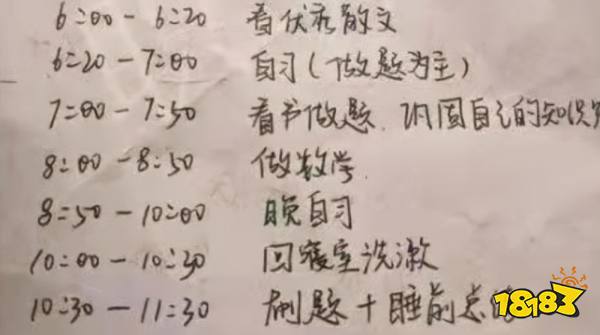 6:00 - 6:20 看优秀散文
6:20 - 7:00 自习(做题为主)
7:00 - 7:50 看书做题、巩固自己的知识
8:00 - 8:50 做数学
8:50 - 10:00 晚自习
10:00 - 10:30 回寝室洗漱
10:30 - 11:30 刷题+睡前总
18183